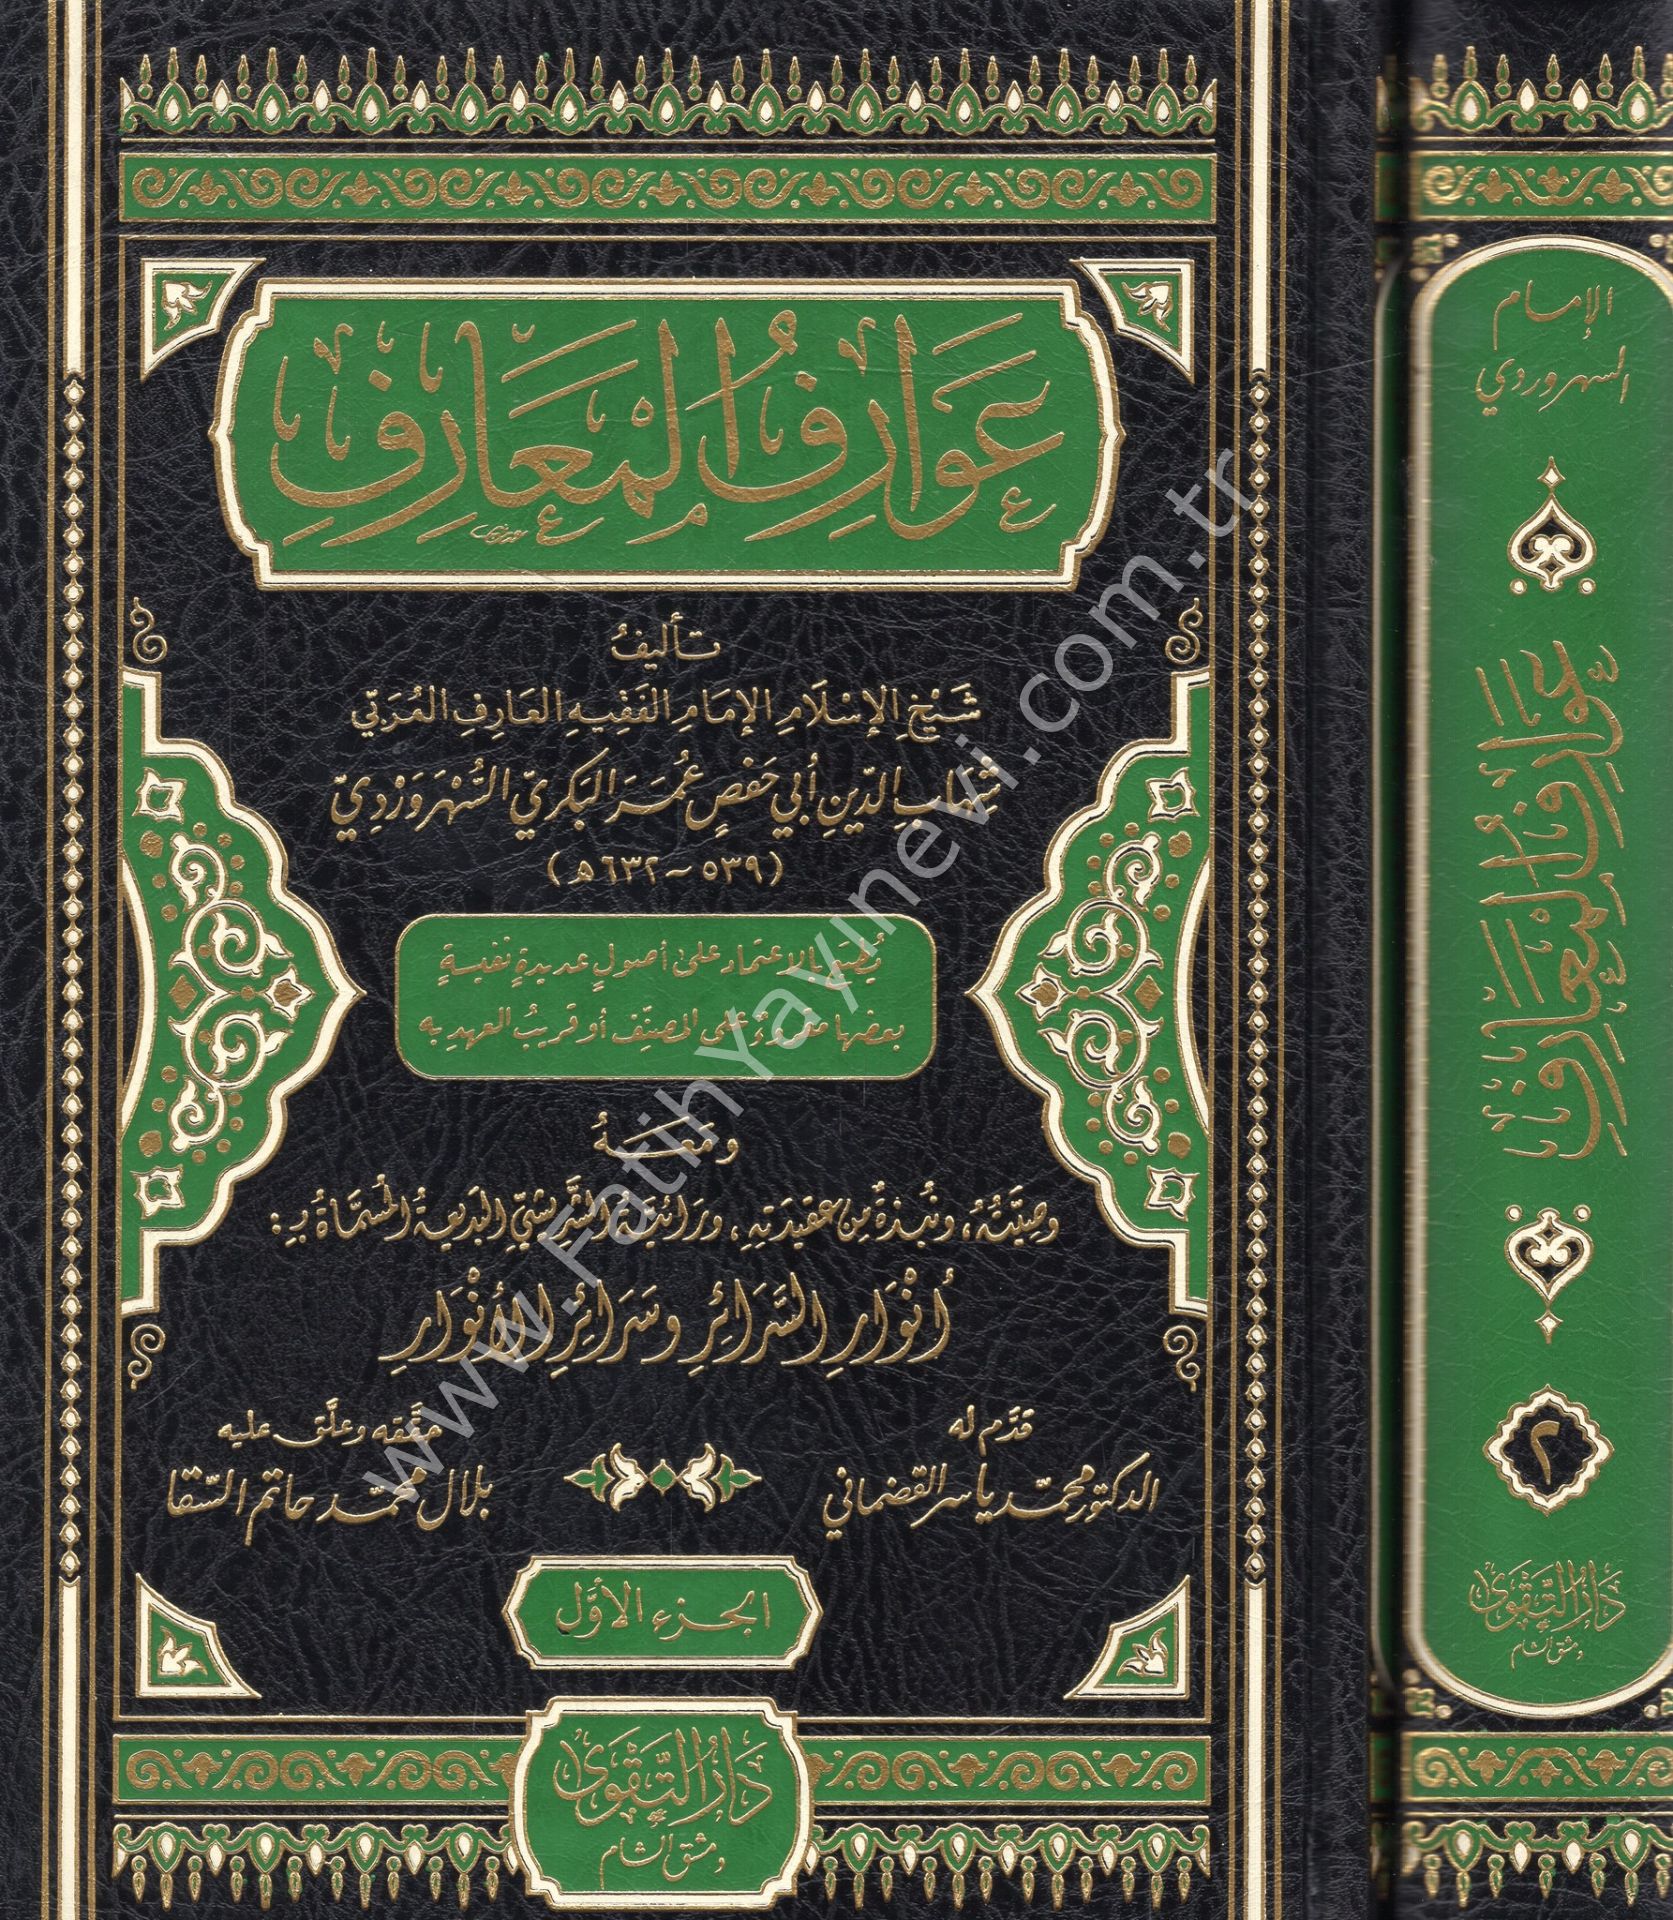 عَوَارِفُ المَعَارِفِ
تأليفُ
شَيْخِ الإِسْلَامِ الإِمَامِ الفَقِيهِ العَارِفِ المُرَبِّي
شِهَابِ الدِّينِ أَبِي حَفْصٍ عُمَرَ البَكْرِيِّ السُّهْرَوَرْدِيِّ
(٥٣٩ ~ ٦٣٢ه)
يُطبَع بالاعتماد على أصولٍ عديدةٍ نفيسةٍ
بعضها مقروءةٌ على المصنِّف أو قريبُ العهدِ به
ومَعَهُ
وصيَّتُهُ، ونُبذةٌ مِن عقيدَتِهِ، ورَائيَّةُ الشَّرِيشيِّ البديعةُ المُسمَّاةُ بـِ:
أَنْوَارِ السَّرَائِرِ وَسَرَائِرِ الأَنْوَارِ
قدَّم له
الدكتور محمَّد ياسر القضماني
حقَّقه وعلَّق عليه
بلال محمَّد حاتم السَّقا
الجزء الأوَّل
دَارُ التَّقْوَى
دمشق الشام
الإمام
السهروردي
عَوَارِفُ المَعَارِفِ
٢
دَارُ التَّقْوَى
دمشق الشام
www.FatihYayinevi.com.tr